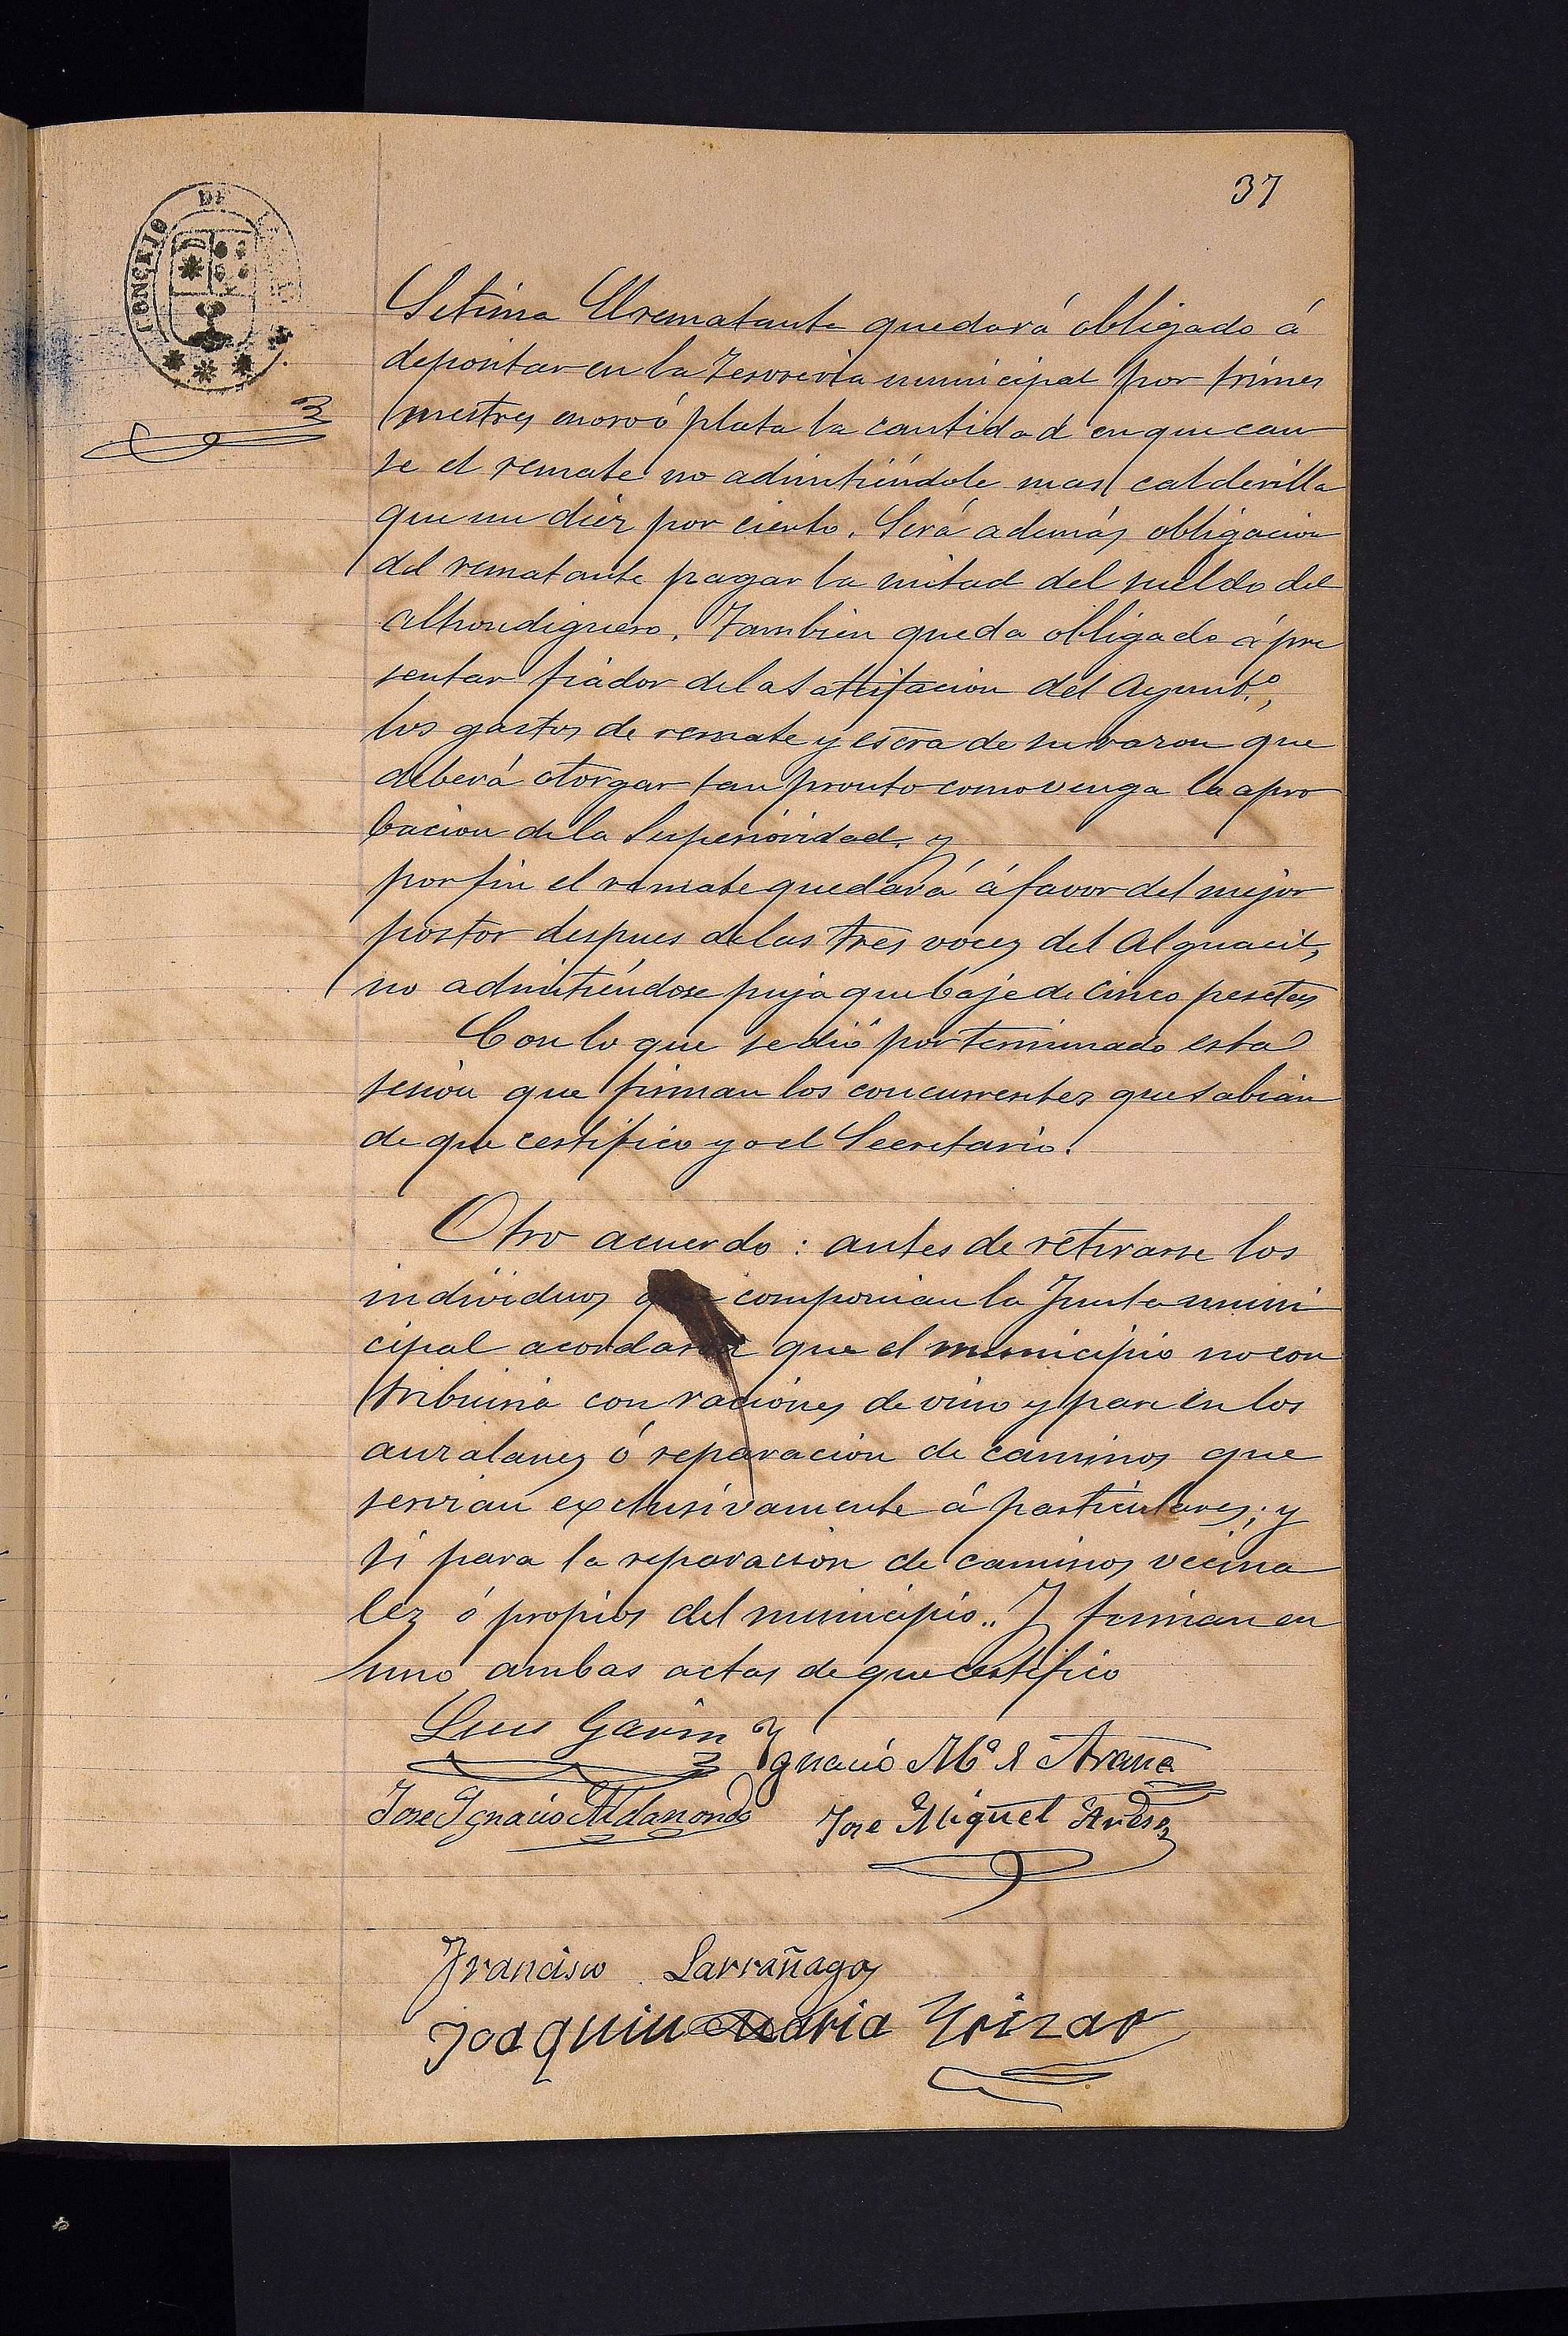 37
CONCEJO DE
Setima El rematante quedará obligado á
depositar en la Tesoreria municipal por trimes
mestres en oro ó plata la cantidad en que cau
se el remate no admitiéndole mas calderilla
que un diéz por ciento. Será además obligacion
del rematante pagar la mitad del sueldo del
alhondiguero. Tambien queda obligado á pre
sentar fiador de la satisfacion del Ayuntº,
los gastos de remate y escra de su razon que
deberá otorgar tan pronto como venga la apro
bacion de la Superioridad. y
por fin el remate quedará á favor del mejor
postor despues de las tres voces del Alguacil,
no admitiéndose puja que baje de cinco pesetas
Con lo que se dió por terminado esta
sesion que firman los concurrentes que sabian
de que certifico yo el Secretario.
Otro acuerdo: antes de retirarse los
individuos que componian la Junta muni
cipal acordaron que el municipio no con
tribuiria con raciones de vino y pan en los
auzalanes ó reparacion de caminos que
servian exclusivamente á particulares; y
si para la reparacion de caminos vecina
lez ó propios del municipio.. Y firman en
uno ambas actas de que certifico
Luis Gavin Ygnacio Mª de Arana
Jose Ygnacio Aldanondo Jose Miguel
Francisco Larrañaga
Joaquin Maria Yrizar